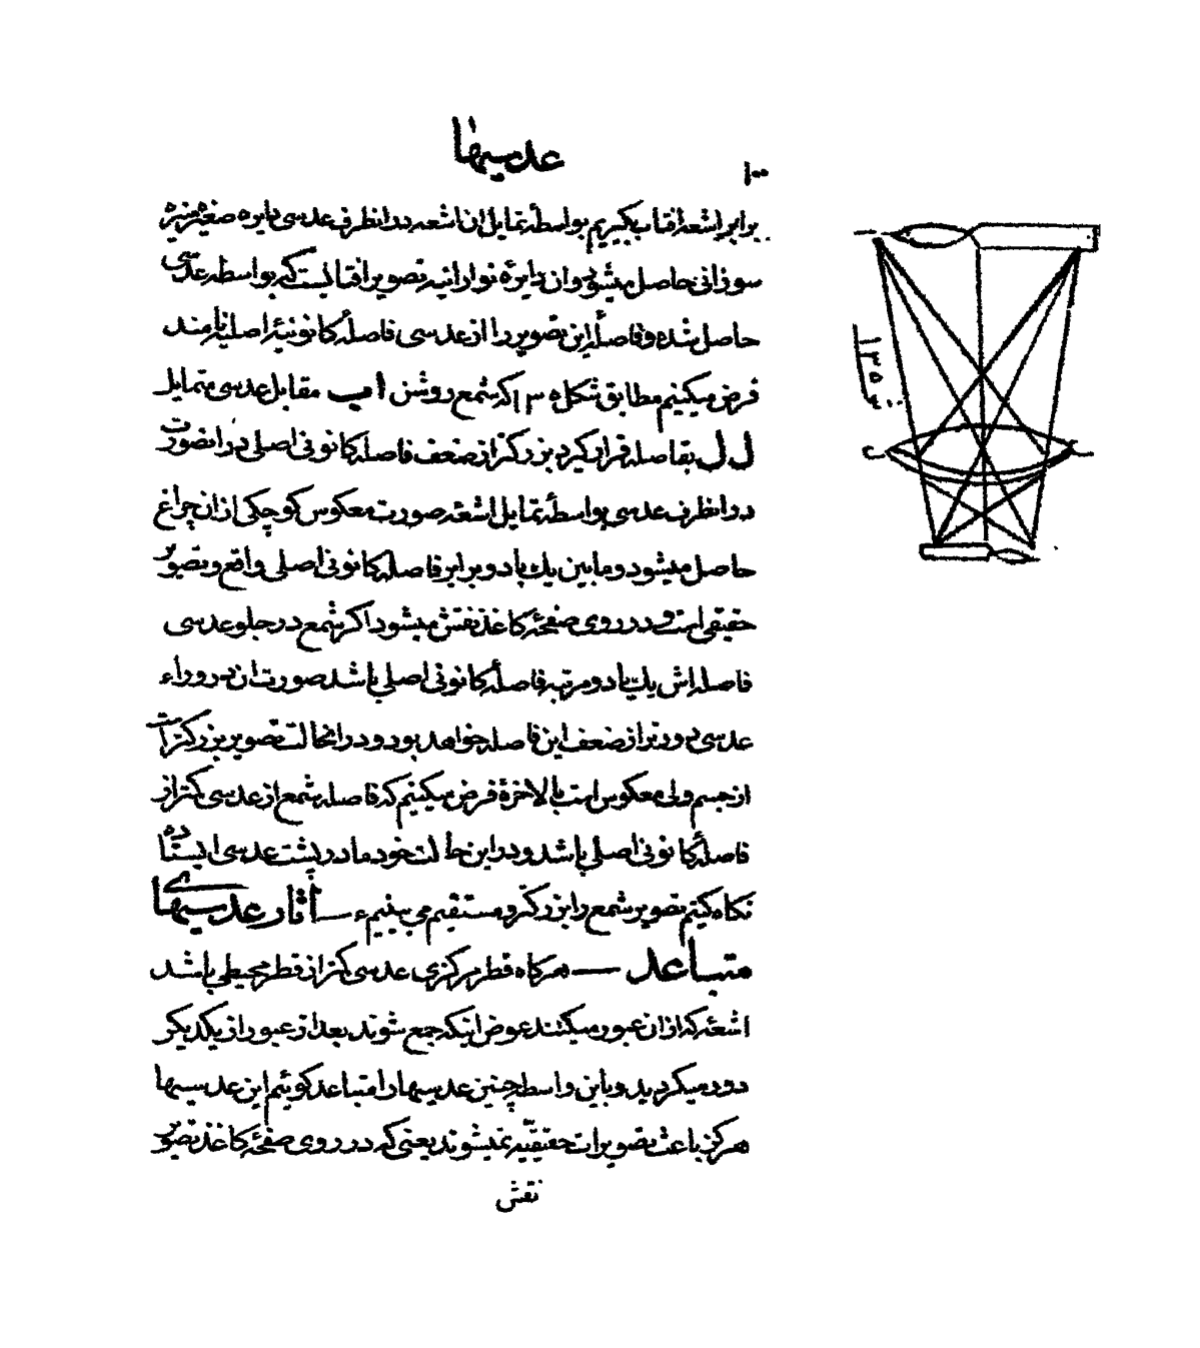 عدسیها
۱۰۰
برابر اشعهٔ افتاب بگیریم بواسطهٔ تمایل ان اشعه در انطرف عدسی دایره صغیرهٔ منیرهٔ
سوزانی حاصل میشود و ان دایرهٔ نورانیه تصویر افتابست که بواسطه عدسی
حاصل شده و فاصلهٔ این تصویر را از عدسی فاصلهٔ کانونیهٔ اصلیه نامند
فرض میکنیم مطابق شکل ۱۳۵ که شمع روشن ا ب مقابل عدسی متمایل
ل ل بفاصله قرار گیرد بزرکتر از ضعف فاصلهٔ کانونی اصلی در انصورت
در انطرف عدسی بواسطهٔ تمایل اشعه صورت معکوس کوچکی از ان چراغ
حاصل میشود و مابین یك یا دو برابر فاصلهٔ کانونی اصلی واقع و تصویر
حقیقی است و در روی صفحهٔ کاغذ نقش میشود اکر شمع در جلو عدسی
فاصله اش یك یا دو مرتبه فاصلهٔ کانونی اصلی باشد صورت ان در وراء
عدسی دورتر از ضعف این فاصله خواهد بود و در انحالت تصویر بزرکتر است
از جسم ولی معکوس است بالاخرهٔ فرض میکنیم که فاصله شمع از عدسی کمتر از
فاصلهٔ کانونی اصلی باشد و در این حالت خود ما در پشت عدسی ایستاده
نکاه کنیم تصویر شمع را بزرکتر و مستقیم می بینیم ـــ اثار عدسیهای
متباعد ـــ هرکاه قطر مرکزی عدسی کمتر از قطر محیطی باشد
اشعهٔ که از ان عبور میکنند عوض اینکه جمع شوند بعد از عبور از یکدیکر
دور میکردید و باین واسطه چنین عدسیها را متباعد کوئیم این عدسیها
هرکز باعث تصویرات حقیقیه نمیشوند یعنی که در روی صفحهٔ کاغذ تصویر
نقش
ش ۱۳۵